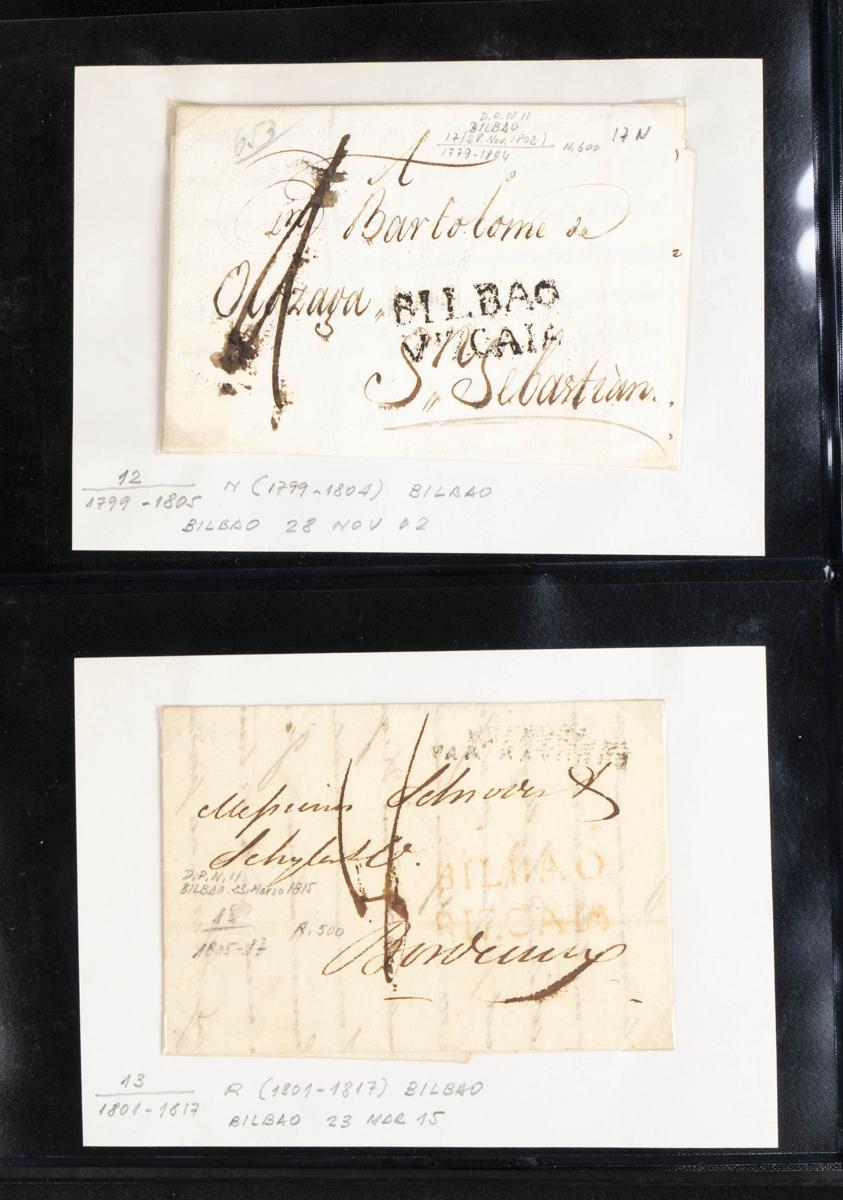 653
D.P.N 11
BILBAO
17 (28. Nov. 1802)
1779-1804
N.600
17 N
A
Dn Bartolome de
Olozaga
BILBAO
VIZCAIA
Sn Sebastian.
12
1799-1805
N (1799-1804) BILBAO
BILBAO 28 NOV 02
ESPAGNE
PAR BAYONNE
Messieurs Schrover &
Schyler & Co.
BILBAO
VIZCAIA
D.P.N. 11
BILBAO. 23. Marzo 1815
18
R. 500
Bordeaux
13
1801-1817
R (1801-1817) BILBAO
BILBAO 23 MAR 15